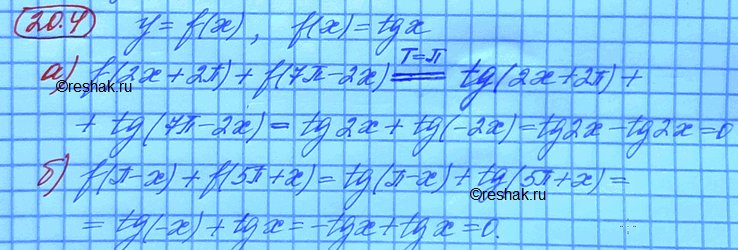 20.4 y = f(x), f(x) = tgx
а) f(2x+2π) + f(7π-2x) T=π == tg(2x+2π) +
+ tg(7π-2x) = tg2x + tg(-2x) = tg2x - tg2x = 0
©reshak.ru
б) f(π-x) + f(5π+x) = tg(π-x) + tg(5π+x) =
= tg(-x) + tgx = -tgx + tgx = 0.
©reshak.ru